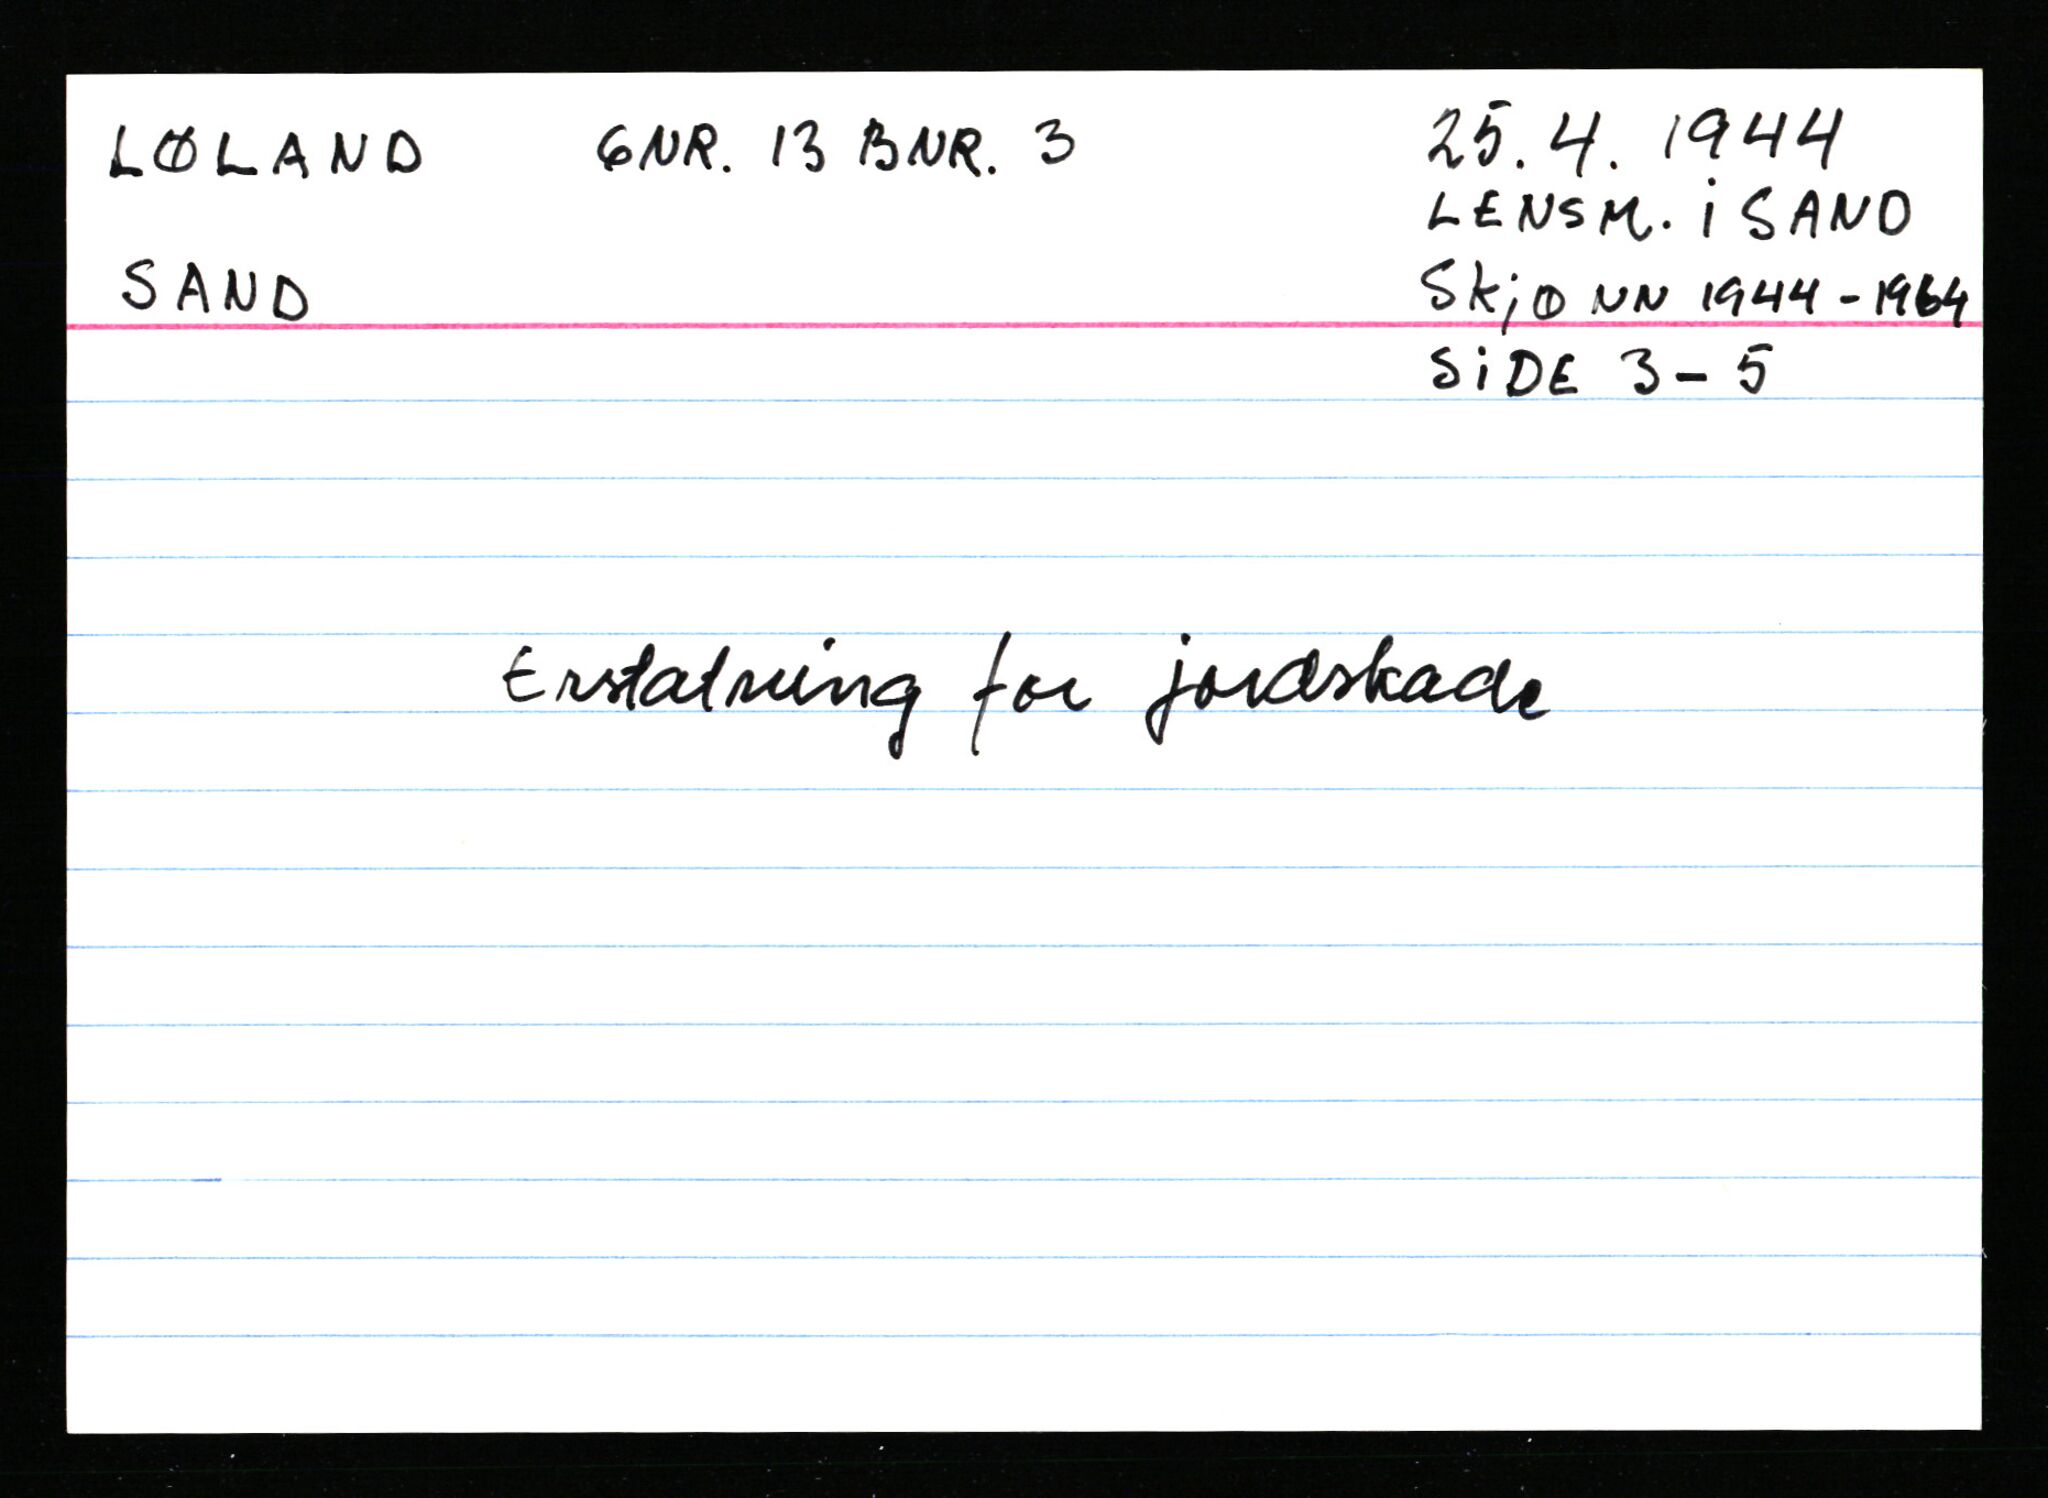 LØLAND GNR. 13 BNR. 3 25.4.1944
LENSM. i SAND
SAND Skjønn 1944-1964
SiDE 3-5
Erstatning for jordskade